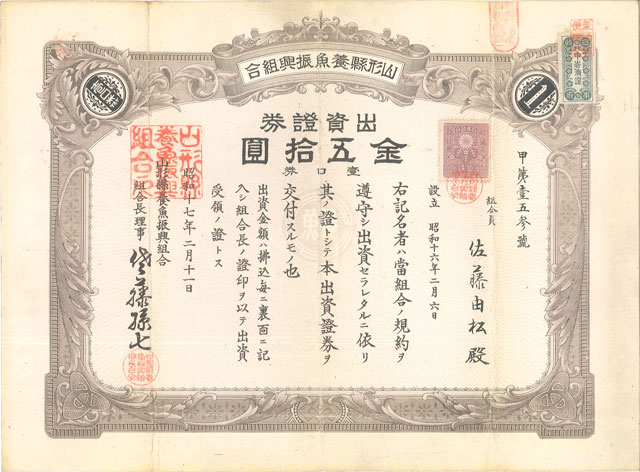 山形縣養魚振興組合
出資證券
金五拾圓
壹口券
甲第壹五参號
組合員 佐藤由松殿
設立 昭和十六年二月六日
右記名者ハ當組合ノ規約ヲ
遵守シ出資セラレタルニ依リ
其ノ證トシテ本出資證券ヲ
交付スルモノ也
出資金額ハ拂込每ニ裏面ニ記
入シ組合長ノ證印ヲ以テ出資
受領ノ證トス
昭和十七年二月十一日
山形縣養魚振興組合
組合長理事 藤孫七